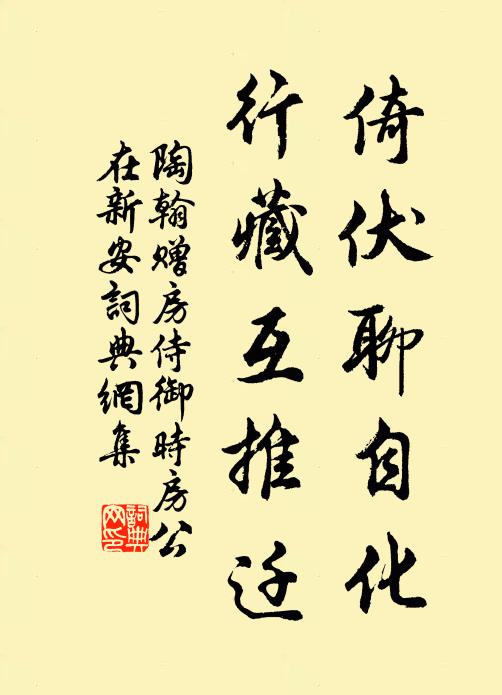 倚伏聊自化
行藏互推迁
陶翰赠房侍御时房公
在新安词典网集
词典网印